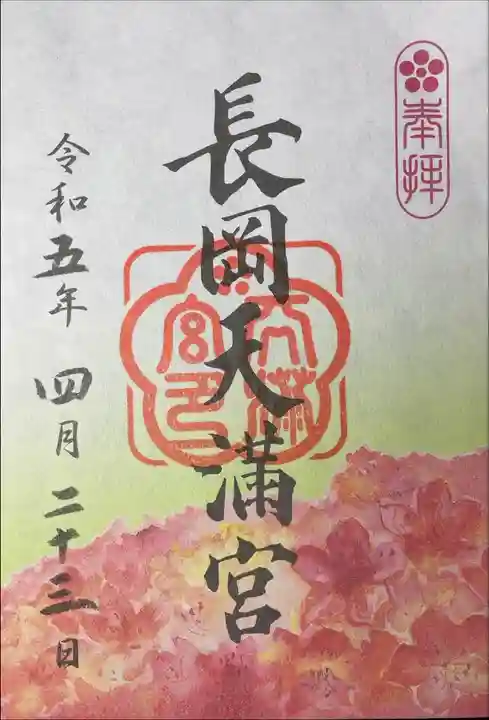 奉拝
長岡天満宮
天満
宮印
令和五年 四月 二十三日